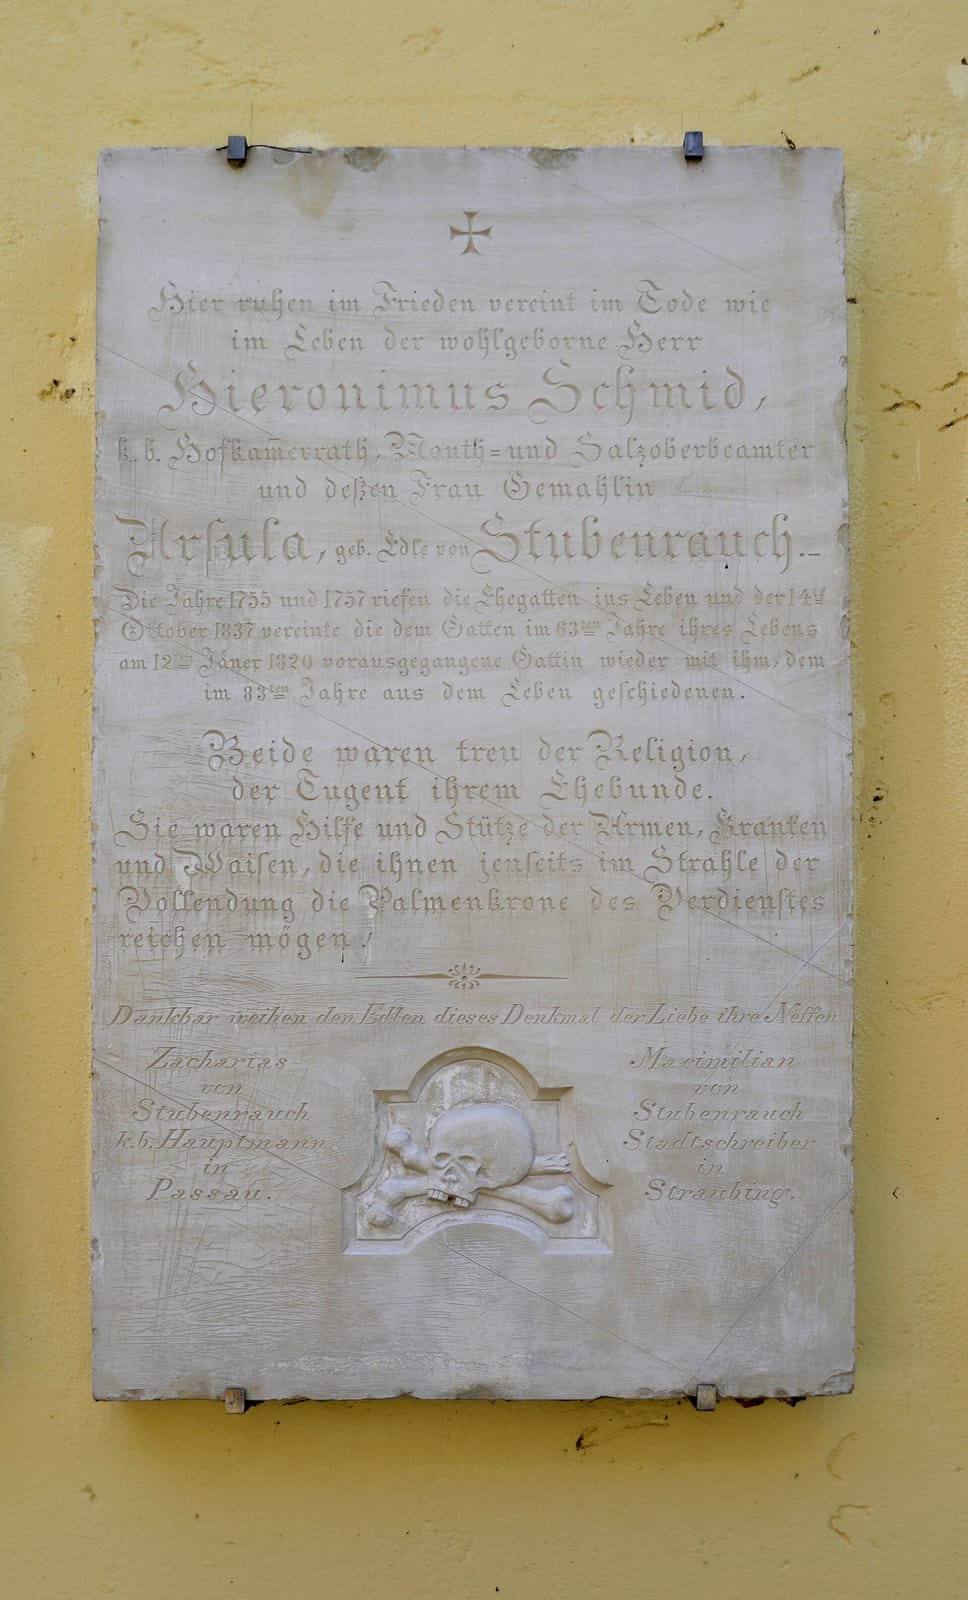 Hier ruhen im Frieden vereint im Tode wie
im Leben der wohlgeborne Herr
Hieronimus Schmid,
k. b. Hofkam̅errath, Mauth= und Salzoberbeamter
und deßen Frau Gemahlin
Ursula, geb. Edle von Stubenrauch.–
Die Jahre 1755 und 1757 riefen die Ehegatten ins Leben und der 14te
Oktober 1837 vereinte die dem Gatten im 63ten Jahre ihres Lebens
am 12ten Jäner 1820 vorausgegangene Gattin wieder mit ihm, dem
im 83ten Jahre aus dem Leben geschiedenen.
Beide waren treu der Religion,
der Tugent ihrem Ehebunde.
Sie waren Hilfe und Stütze der Armen, Kranken
und Waisen, die ihnen jenseits im Strahle der
Vollendung die Palmenkrone des Verdienstes
reichen mögen!
Dankbar weihen den Edlen dieses Denkmal der Liebe ihre Neffen
Zacharias
von
Stubenrauch
k.b. Hauptmann
in
Passau.
Maximilian
von
Stubenrauch
Stadtschreiber
in
Straubing.